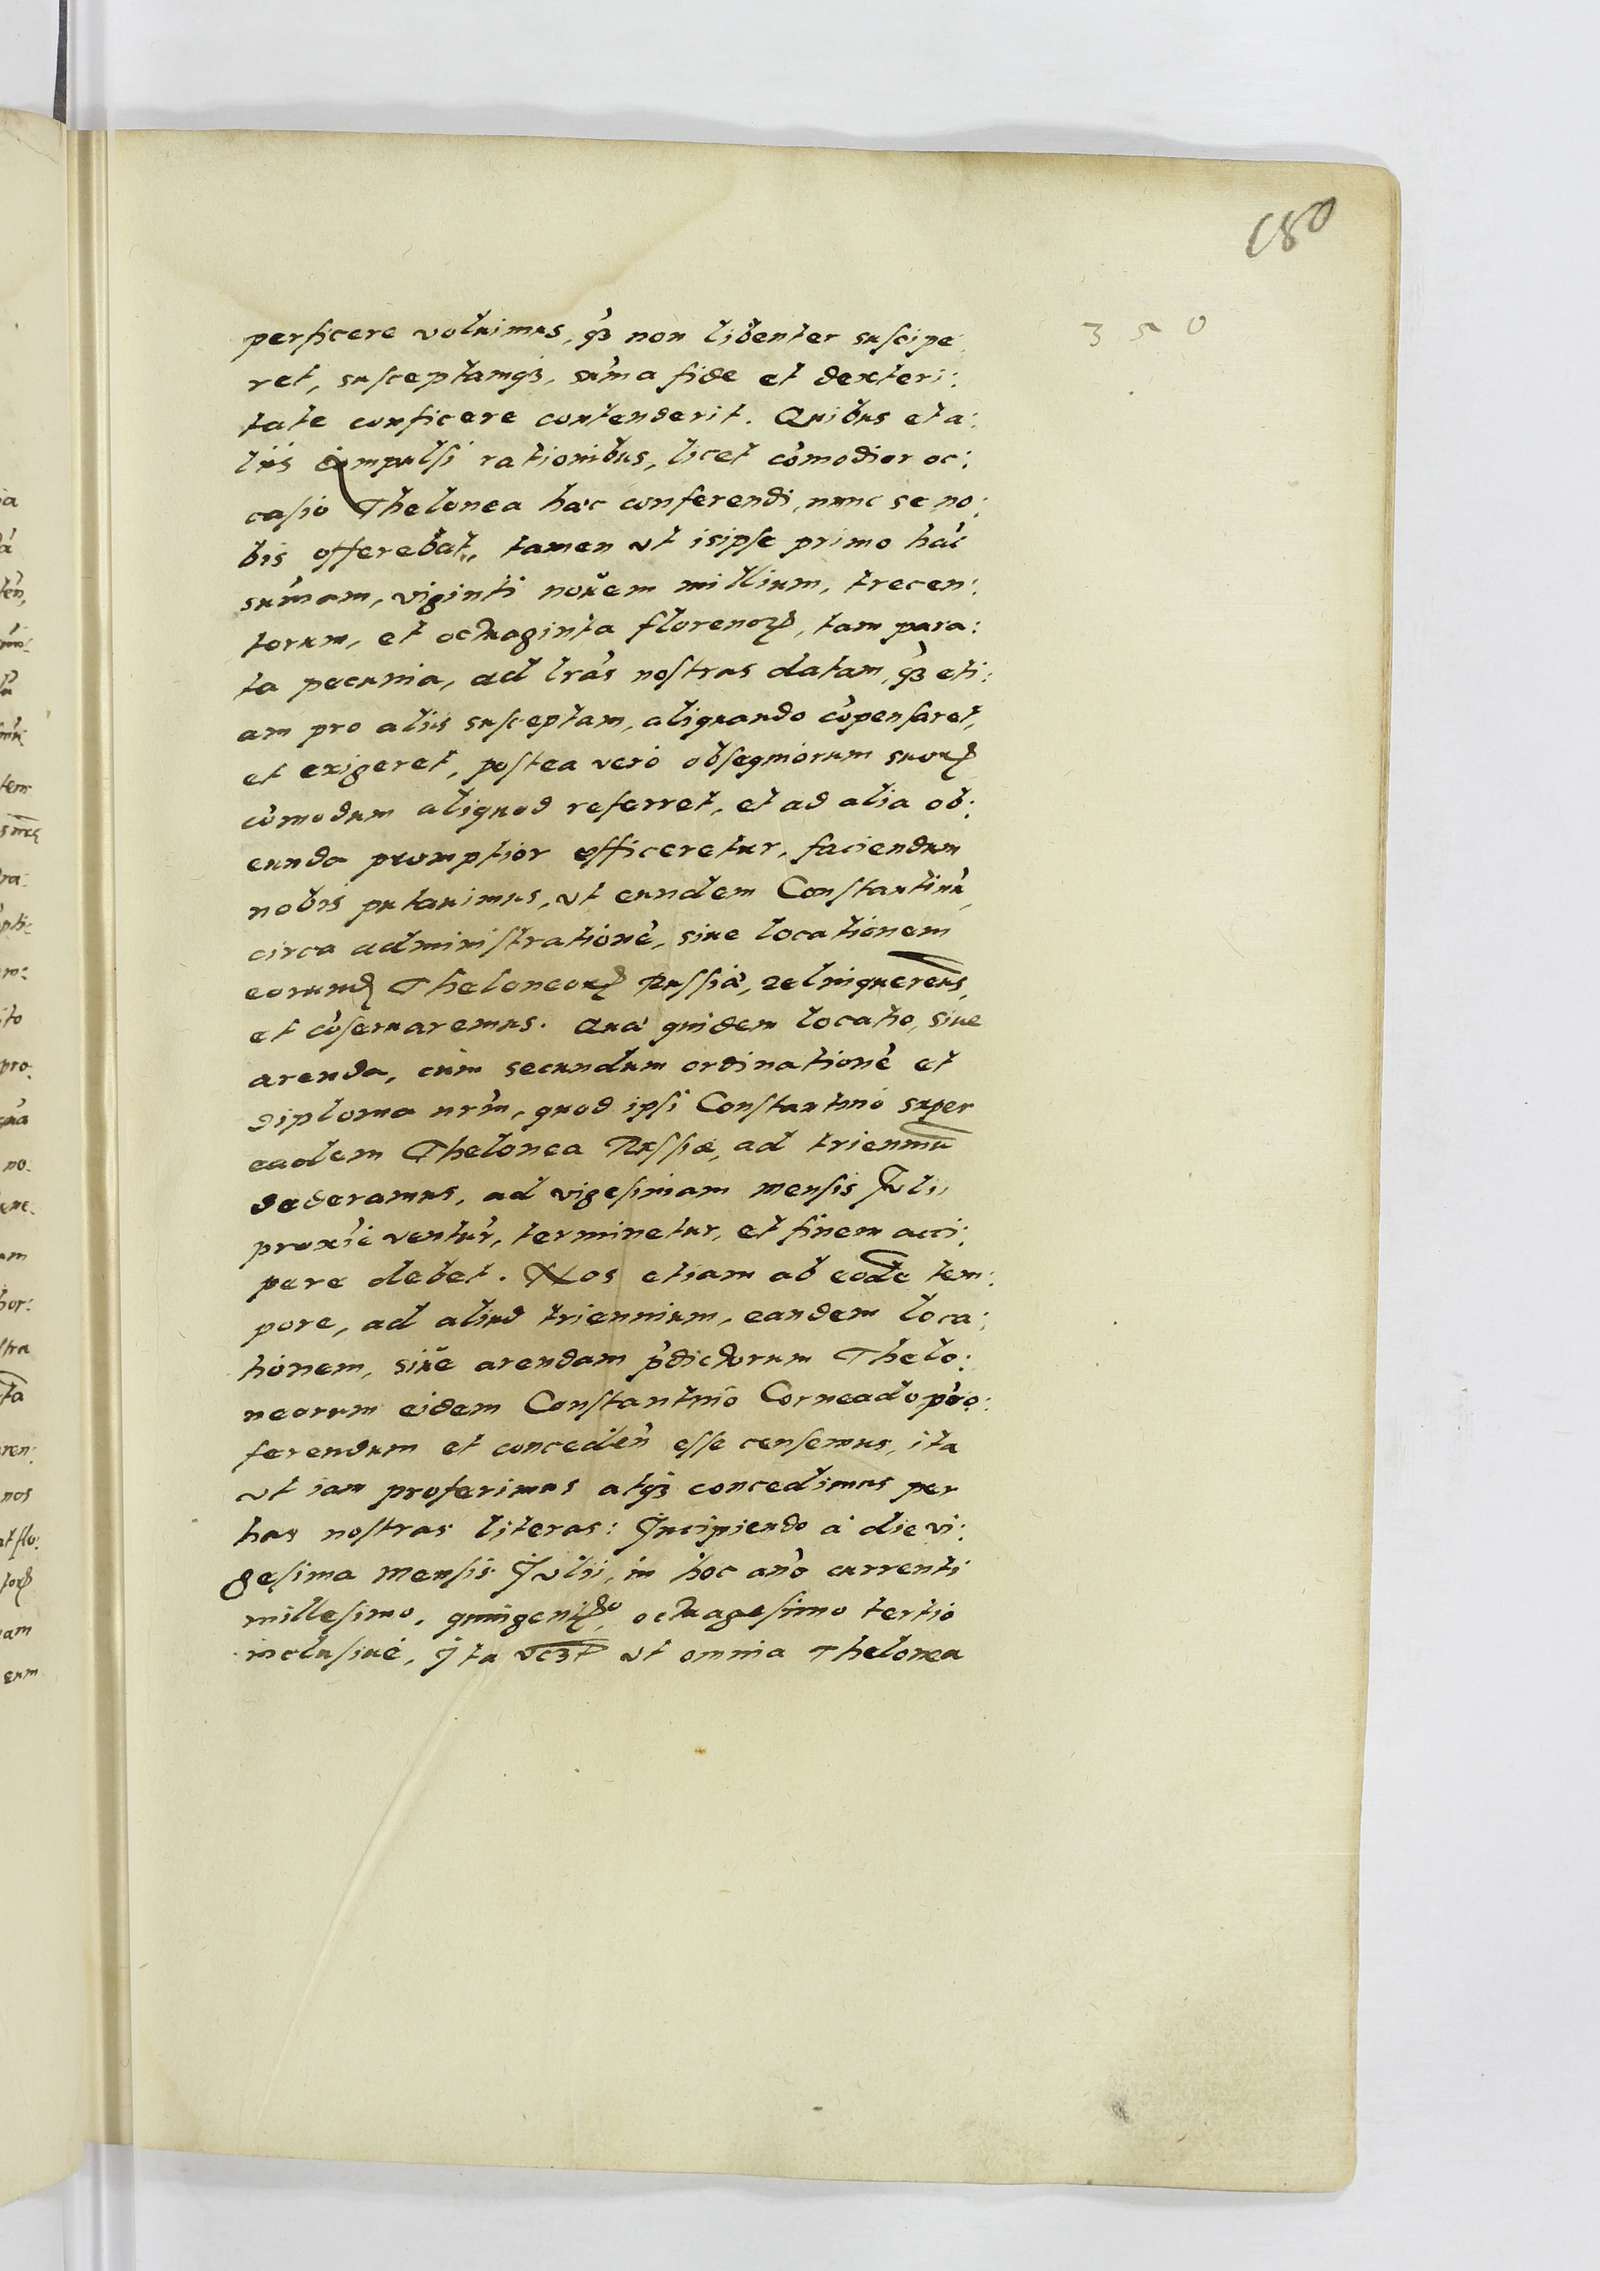 180
350
perficere voluimus, quā non libenter suscipe
ret, susceptamq3, sum̄a fide et dexteri:
tate conficere contenderit. Quibus et a:
liis impulsi rationibus, licet cōmodior oc:
casio Thelonea hæc conferendi, nunc se no:
bis offerebat, tamen vt is ipse primo hāc
sum̄am, viginti nouem millium, trecen:
torum, et octuaginta florenorꝝ, tam para:
ta pecunia, ad lrās nostras datam, quā eti:
am pro aliis susceptam, aliquando cōpensaret,
et exigeret, postea verò obsequiorum suorꝝ
cōmodum aliquod referret, et ad alia ob:
eunda promptior efficeretur, faciendum
nobis putauimus, vt eundem Constantinū,
circa administrationē, siue locationem
eorund Theloneorꝝ Russiæ, relinqueremus,
et cōseruaremus. Quæ quidem locatio, siue
arenda, cùm secundum ordinationē et
diploma nrm̄, quod ipsi Constantino super
eadem Thelonea Russiæ, ad trienniū
dederamus, ad vigesimam mensis Julii
proximè ventur̄, terminetur, et finem acci:
pere debet. Nos etiam ab eodē tem:
pore, ad aliud triennium, eandem loca:
tionem, siue arendam p̄dictorum Thelo:
neorum eidem Constantino Corneado pro:
ferendum et conceden̄ esse censemus, ita
vt iam proferimus atq3 concedimus per
has nostras literas: Incipiendo à die vi:
gesima mensis Julii, in hoc an̄o currenti
millesimo, quingentꝝᵒ, octuagesimo tertio
inclusiuè, Ita vt omnia Thelonea